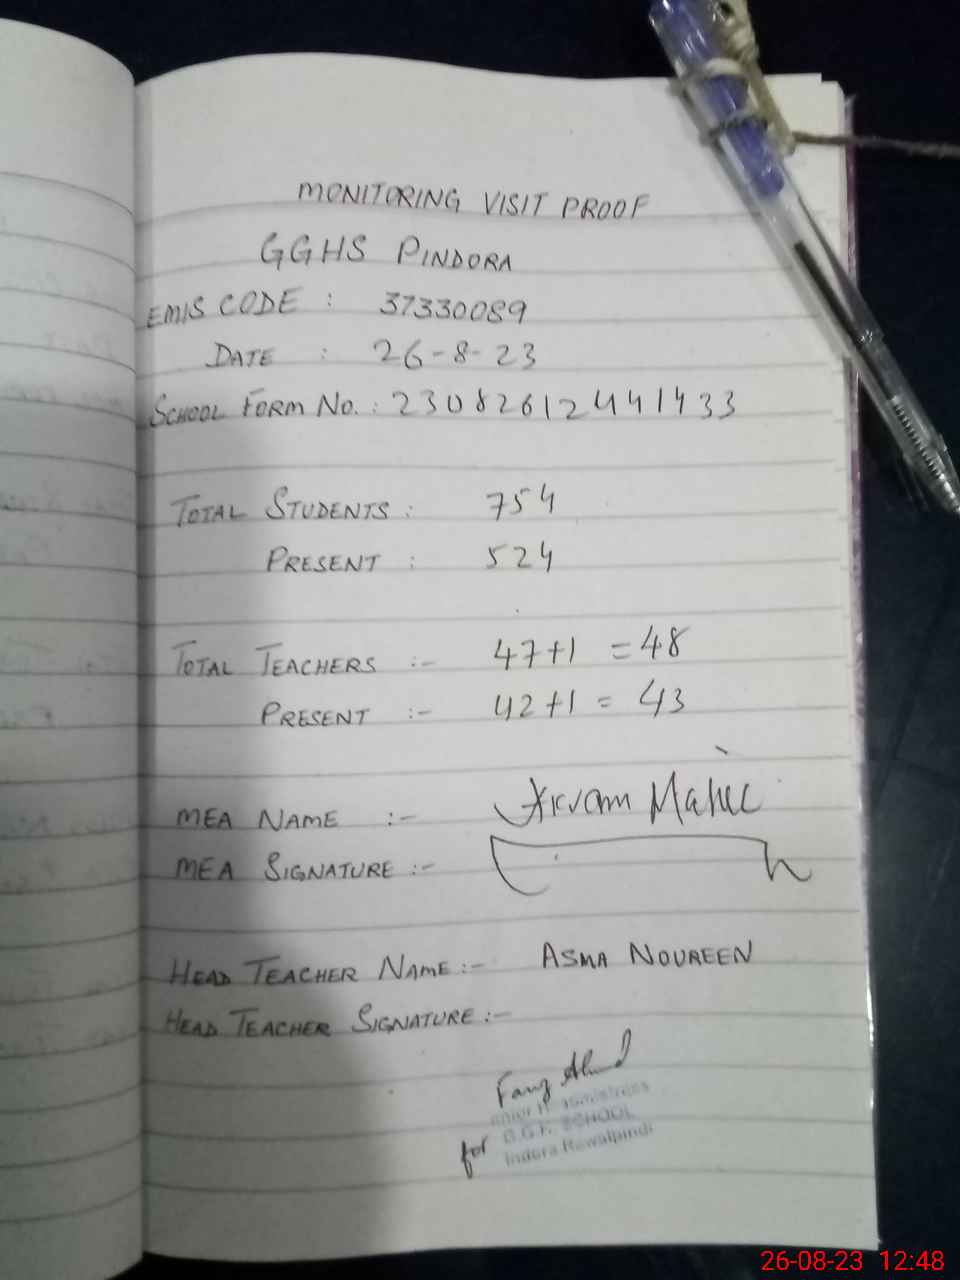 MONITORING VISIT PROOF
GGHS PINDORA
EMIS CODE : 37330089
DATE : 26-8-23
SCHOOL FORM NO. : 23082612441433
TOTAL STUDENTS : 754
PRESENT : 524
TOTAL TEACHERS :- 47+1 = 48
PRESENT :- 42+1 = 43
MEA NAME :-
MEA SIGNATURE :-
HEAD TEACHER NAME :- ASMA NOUREEN
HEAD TEACHER SIGNATURE :-
SCHOOL
for Rawalpindi
26-08-23 12:48